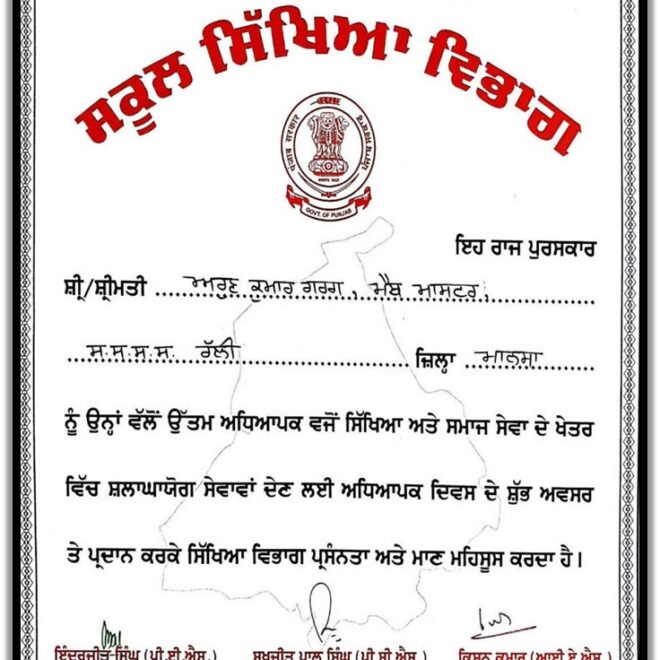 ਸਕੂਲ ਸਿੱਖਿਆ ਵਿਭਾਗ
ਪੰਜਾਬ ਸਰਕਾਰ
GOVT. OF PUNJAB
ਇਹ ਰਾਜ ਪੁਰਸਕਾਰ
ਸ਼੍ਰੀ/ਸ਼੍ਰੀਮਤੀ ਅਰੁਣ ਕੁਮਾਰ ਗਰਗ, ਮੈਥ ਮਾਸਟਰ,
ਸ.ਸ.ਸ.ਸ. ਰੱਲੀ ਜ਼ਿਲ੍ਹਾ ਮਾਨਸਾ
ਨੂੰ ਉਨ੍ਹਾਂ ਵੱਲੋਂ ਉੱਤਮ ਅਧਿਆਪਕ ਵਜੋਂ ਸਿੱਖਿਆ ਅਤੇ ਸਮਾਜ ਸੇਵਾ ਦੇ ਖੇਤਰ
ਵਿੱਚ ਸ਼ਲਾਘਾਯੋਗ ਸੇਵਾਵਾਂ ਦੇਣ ਲਈ ਅਧਿਆਪਕ ਦਿਵਸ ਦੇ ਸ਼ੁੱਭ ਅਵਸਰ
ਤੇ ਪ੍ਰਦਾਨ ਕਰਕੇ ਸਿੱਖਿਆ ਵਿਭਾਗ ਪ੍ਰਸੰਨਤਾ ਅਤੇ ਮਾਣ ਮਹਿਸੂਸ ਕਰਦਾ ਹੈ।
ਇੰਦਰਜੀਤ ਸਿੰਘ (ਪੀ.ਈ.ਐਸ.) ਸੁਖਜੀਤ ਪਾਲ ਸਿੰਘ (ਪੀ.ਸੀ.ਐਸ.) ਕ੍ਰਿਸ਼ਨ ਕੁਮਾਰ (ਆਈ.ਏ.ਐਸ.)